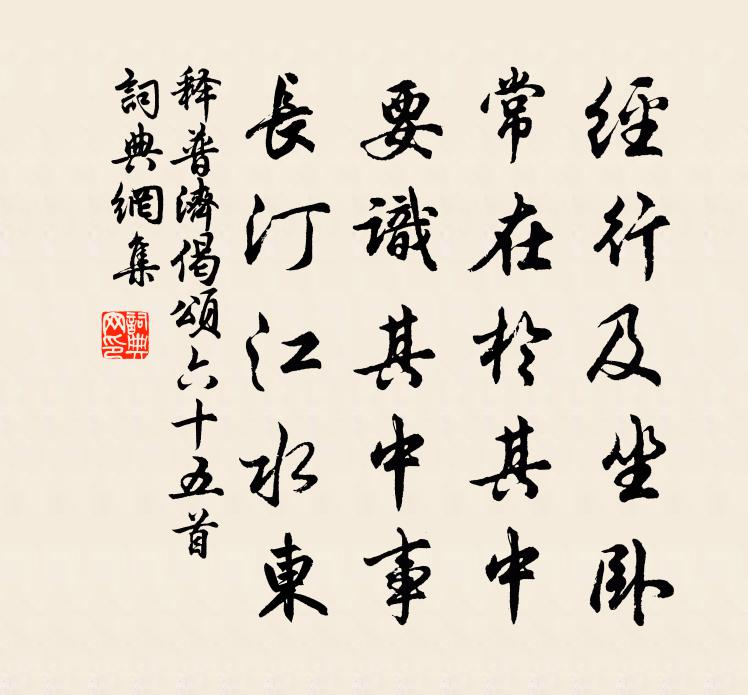 經行及坐臥
常在於其中
要識其中事
長汀江水東
释普濟偈頌六十五首
詞典網集
詞典
网印